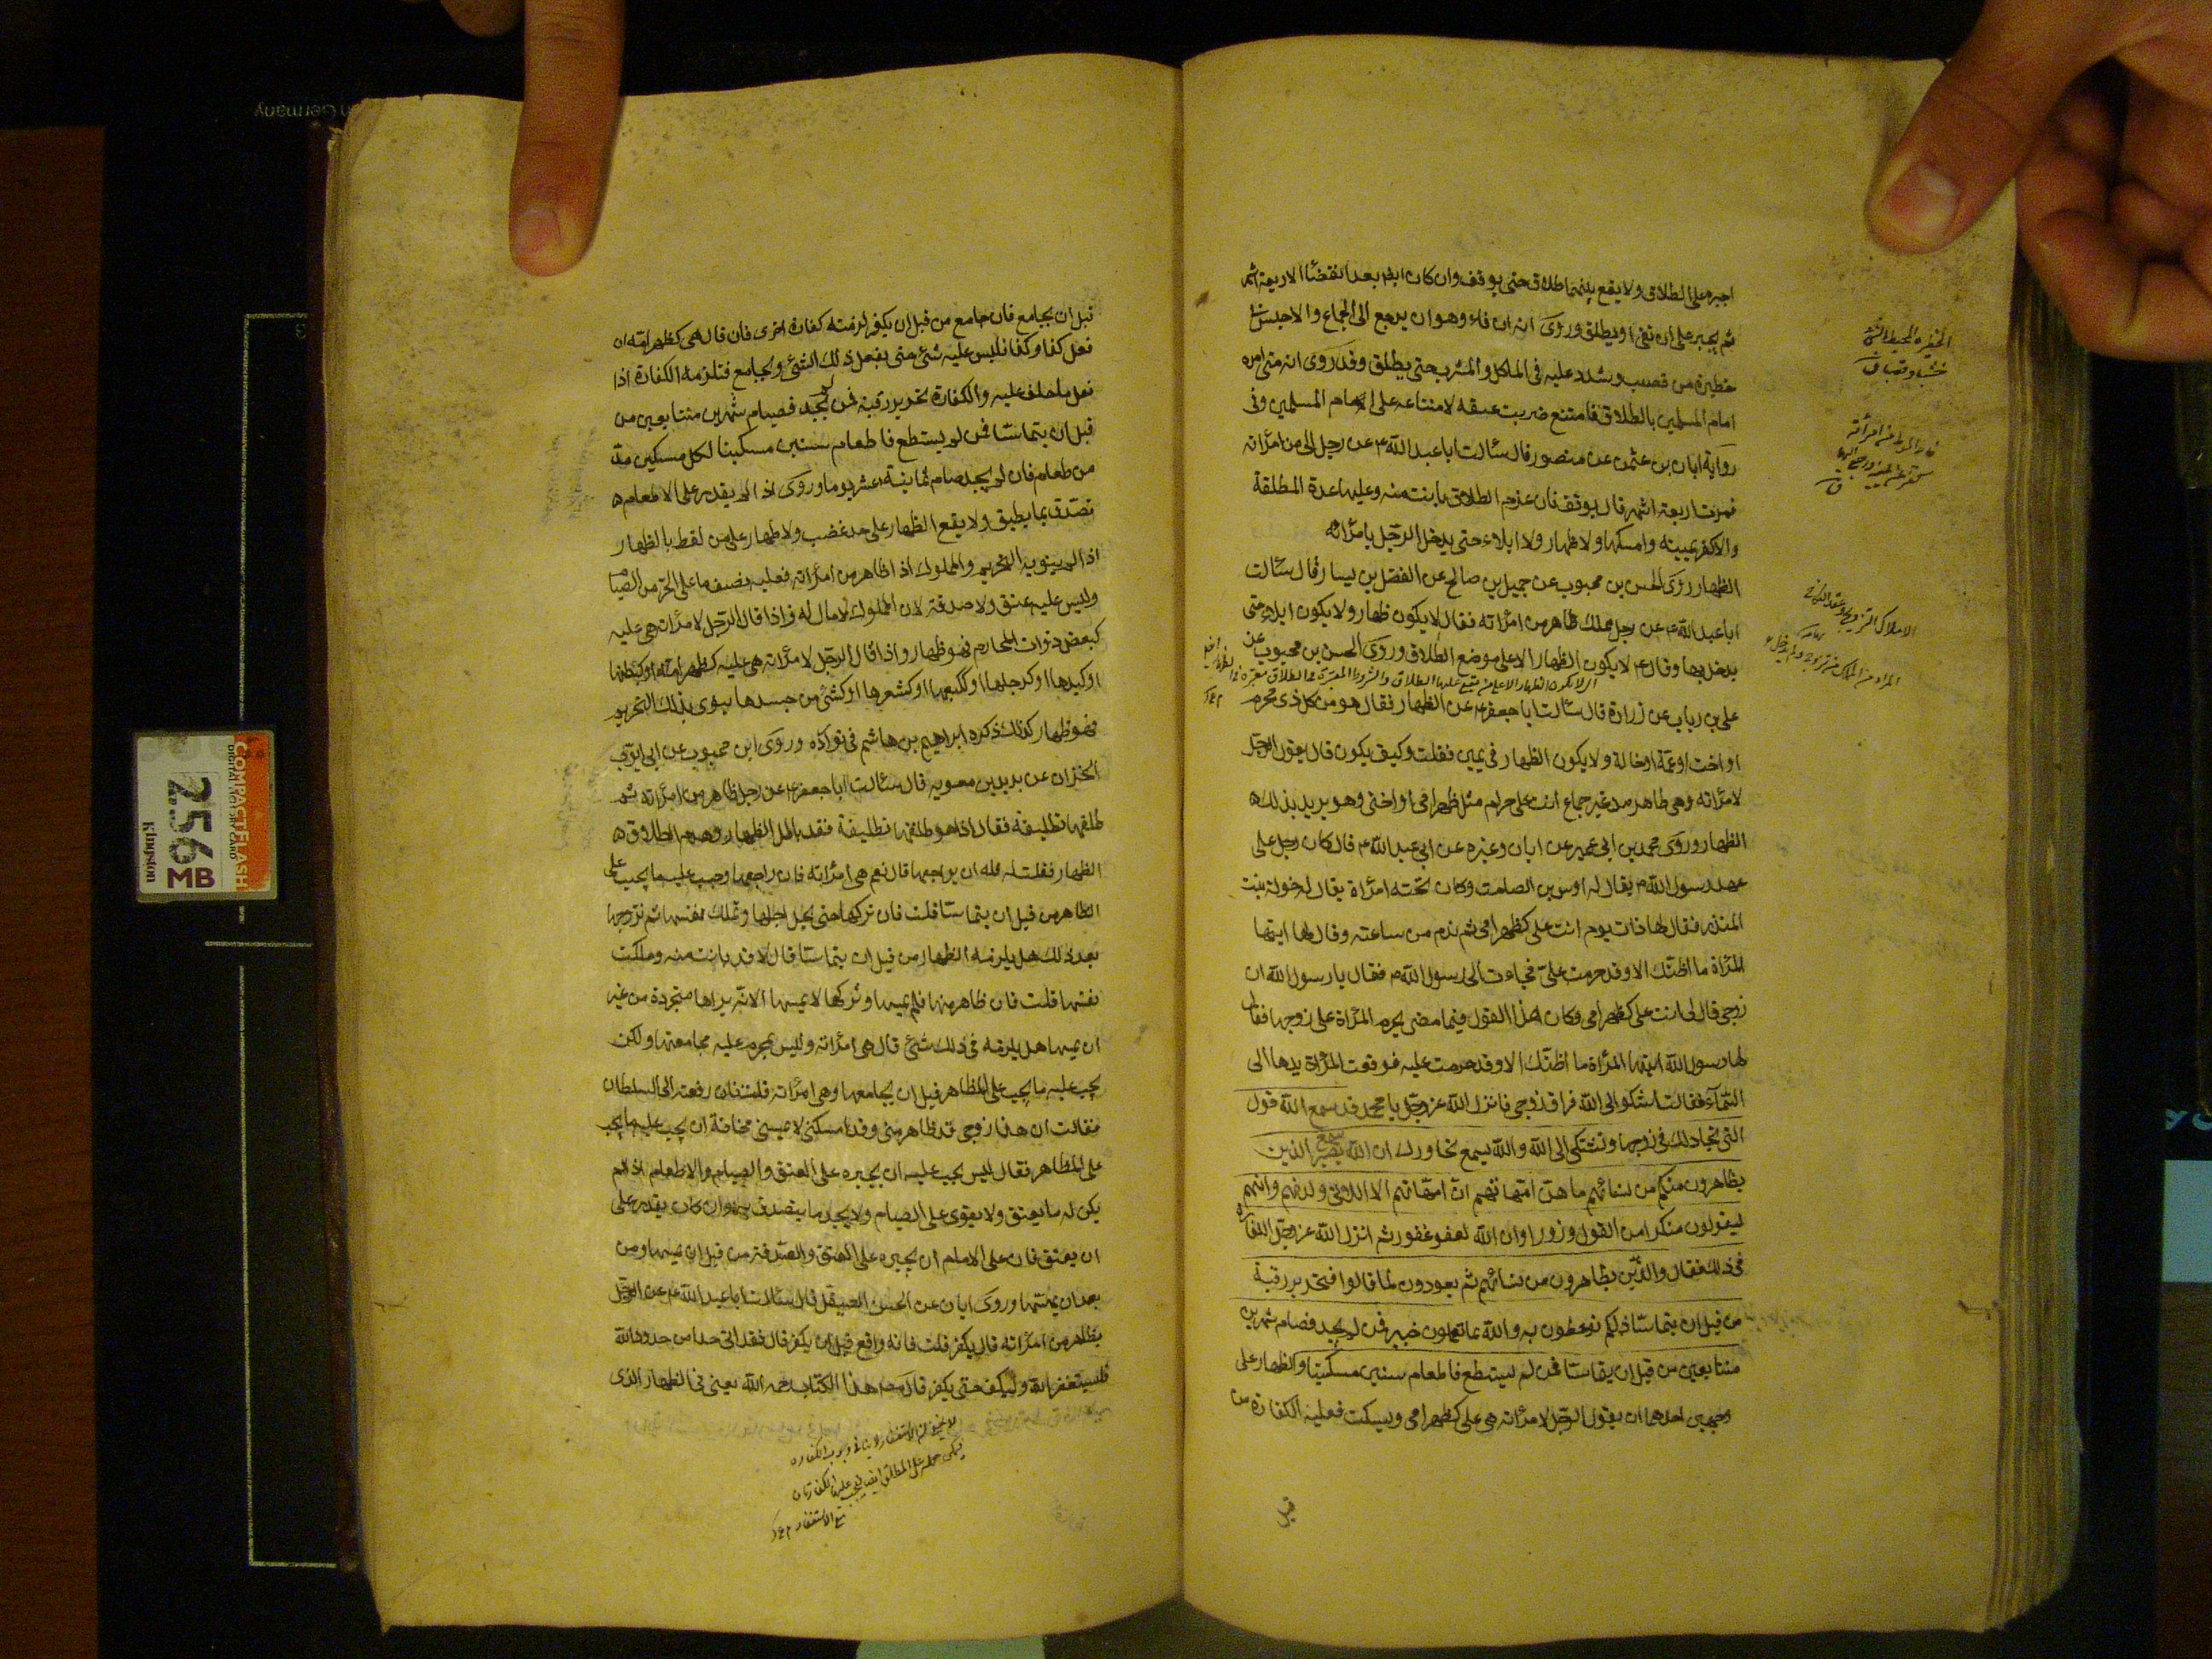 اجبر على الطلاق ولا يقع بينهما طلاق حتى يوقف وان كان ايضا بعد انقضاء الاربعة اشهر
ثم يجبر على ان يفئ او يطلق وروى انه ان فاء وهو ان يرجع الى الجماع والا حبس في
حظيرة من قصب وشدد عليه في المأكل والمشرب حتى يطلق وقد روى انه متى امره
امام المسلمين بالطلاق فامتنع ضربت عنقه لامتناعه على امام المسلمين وفى
رواية ابان بن عثمن عن منصور قال سئالت ابا عبد الله ع عن رجل الى من امرأته
فمرت اربعة اشهر قال يوقف فان عزم الطلاق بانت منه وعليها عدة المطلقة
والا كفر يمينه وامسكها ولا ظهار ولا ايلاء حتى يدخل الرجل بامرأته
الظهار روى الحسن بن محبوب عن جميل بن صالح عن الفضل بن يسار قال سئالت
ابا عبد الله ع عن رجل مملك ظاهر من امرأته فقال لا يكون ظهار ولا يكون ايلاء حتى
يدخل بها وقال ع لا يكون الظهار الا على موضع الطلاق وروى الحسن بن محبوب عن
على بن رياب عن زرارة قال سئالت ابا جعفر ع عن الظهار فقال هو من كل ذى محرم
او اخت او عمة او خالة ولا يكون الظهار في يمين فقلت وكيف يكون قال يقول الرجل
لامرأته وهى طاهر من غير جماع انت على حرام مثل ظهر امى او اختى وهو يريد بذلك
الظهار وروى محمد بن ابى عمير عن ابان وغيره عن ابى عبد الله ع قال كان رجل على
عهد رسول الله ص يقال له اوس بن الصامت وكان تحته امرأة يقال لها خولة بنت
المنذر فقال لها ذات يوم انت على كظهر امى ثم ندم من ساعته وقال لها ايتها
المرأة ما اظنك الا وقد حرمت على فجاءت الى رسول الله ص فقال يا رسول الله ان
زوجى قال لى انت على كظهر امى وكان هذا القول فيما مضى يحرم المرأة على زوجها فقال
لها رسول الله ايتها المرأة ما اظنك الا وقد حرمت عليه فرفعت المرأة يدها الى
السماء فقالت اشكو الى الله فراق زوجى فانزل الله عز وجل يا محمد قد سمع الله قول
التى تجادلك في زوجها وتشتكى الى الله والله يسمع تحاوركما ان الله سميع بصير الذين
يظاهرون منكم من نسائهم ما هن امهاتهم ان امهاتهم الا اللائى ولدنهم وانهم
ليقولون منكرا من القول وزورا وان الله لعفو غفور ثم انزل الله عز وجل الكفارة
في ذلك فقال والذين يظاهرون من نسائهم ثم يعودون لما قالوا فتحرير رقبة
من قبل ان يتماسا ذلكم توعظون به والله بما تعملون خبير فمن لم يجد فصيام شهرين
متتابعين من قبل ان يتماسا فمن لم يستطع فاطعام ستين مسكينا والظهار على
وجهين احدهما ان يقول الرجل لامرأته هى على كظهر امى ويسكت فعليه الكفارة من
قبل
قبل ان يجامع فان جامع من قبل ان يكفر لزمته كفارة اخرى فان قال هى كظهر امه ان
فعل كذا وكذا فليس عليه شئ حتى يفعل ذلك الشئ ويجامع فتلزمه الكفارة اذا
فعل ما حلف عليه والكفارة تحرير رقبة فمن لم يجد فصيام شهرين متتابعين من
قبل ان يتماسا فمن لم يستطع فاطعام ستين مسكينا لكل مسكين مد
من طعام فان لم يجد صام ثمانية عشر يوما وروى اذا لم يقدر على الاطعام
تصدق بما يطيق ولا يقع الظهار على حد غضب ولا ظهار على من لفظ بالظهار
اذا لم ينو به التحريم والمملوك اذا ظاهر من امرأته فعليه نصف ما على الحر من الصيام
وليس عليه عتق ولا صدقة لان المملوك لا مال له واذا قال الرجل لامرأته هى عليه
كبعض ذوات المحارم فهو ظهار واذا قال الرجل لامرأته هى عليه كظهر امه او كبطنها
او كيدها او كرجلها او ككعبها او كشعرها او كشئ من جسدها ينوى بذلك التحريم
فهو ظهار كذلك ذكره ابراهيم بن هاشم في نوادره وروى ابن محبوب عن ابى ايوب
الخزاز عن بريد بن معوية قال سئالت ابا جعفر ع عن رجل ظاهر من امرأته ثم
طلقها تطليقة فقال اذا هو طلقها تطليقة فقد بطل الظهار وهدم الطلاق
الظهار فقلت له فله ان يراجعها قال نعم هى امرأته فان راجعها وجب عليه ما يجب على
المظاهر من قبل ان يتماسا قلت فان تركها حتى يحل اجلها وتملك نفسها ثم تزوجها
بعد ذلك هل يلزمه الظهار من قبل ان يتماسا قال لا قد بانت منه وملكت
نفسها قلت فان ظاهر منها فلم يمسها وتركها لا يمسها الا انه يراها متجردة من غير
ان يمسها هل يلزمه في ذلك شئ قال هى امرأته وليس يحرم عليه مجامعتها ولكن
يجب عليه ما يجب على المظاهر قبل ان يجامعها وهى امرأته قلت فان رفعته الى السلطان
فقالت ان هذا زوجى قد ظاهر منى وقد امسكنى لا يمسنى مخافة ان يجب عليه ما يجب
على المظاهر فقال ليس يجب عليه ان يجبره على العتق والصيام والاطعام اذا لم
يكن له ما يعتق ولا يقوى على الصيام ولا يجد ما يتصدق به وان كان يقدر على
ان يعتق فان على الامام ان يجبره على العتق والصدقة من قبل ان يمسها ومن
بعد ان يمسها وروى ابان عن الحسن الصيقل قال سئالت ابا عبد الله ع عن الرجل
يظاهر من امرأته قال يكفر قلت فانه واقع قبل ان يكفر قال فقد اتى حدا من حدود الله
فليستغفر الله وليكف حتى يكفر قال مصنف هذا الكتاب رحمه الله يعنى في الظهار الذى
COMPACTFLASH
256
MB
Kingston
Germany